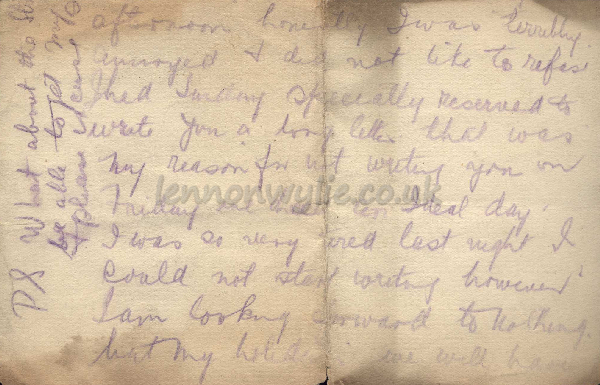 afternoon honestly I was terribly
annoyed I did not like to refuse
I had Sunday specially reserved to
write you a long letter that was
my reason for not writing you on
Friday ideal day.
I was so very tired last night I
could not start writing however
I am looking forward to nothing
but my we will have
PS What about the
be able to get my
please
lennonwylie.co.uk